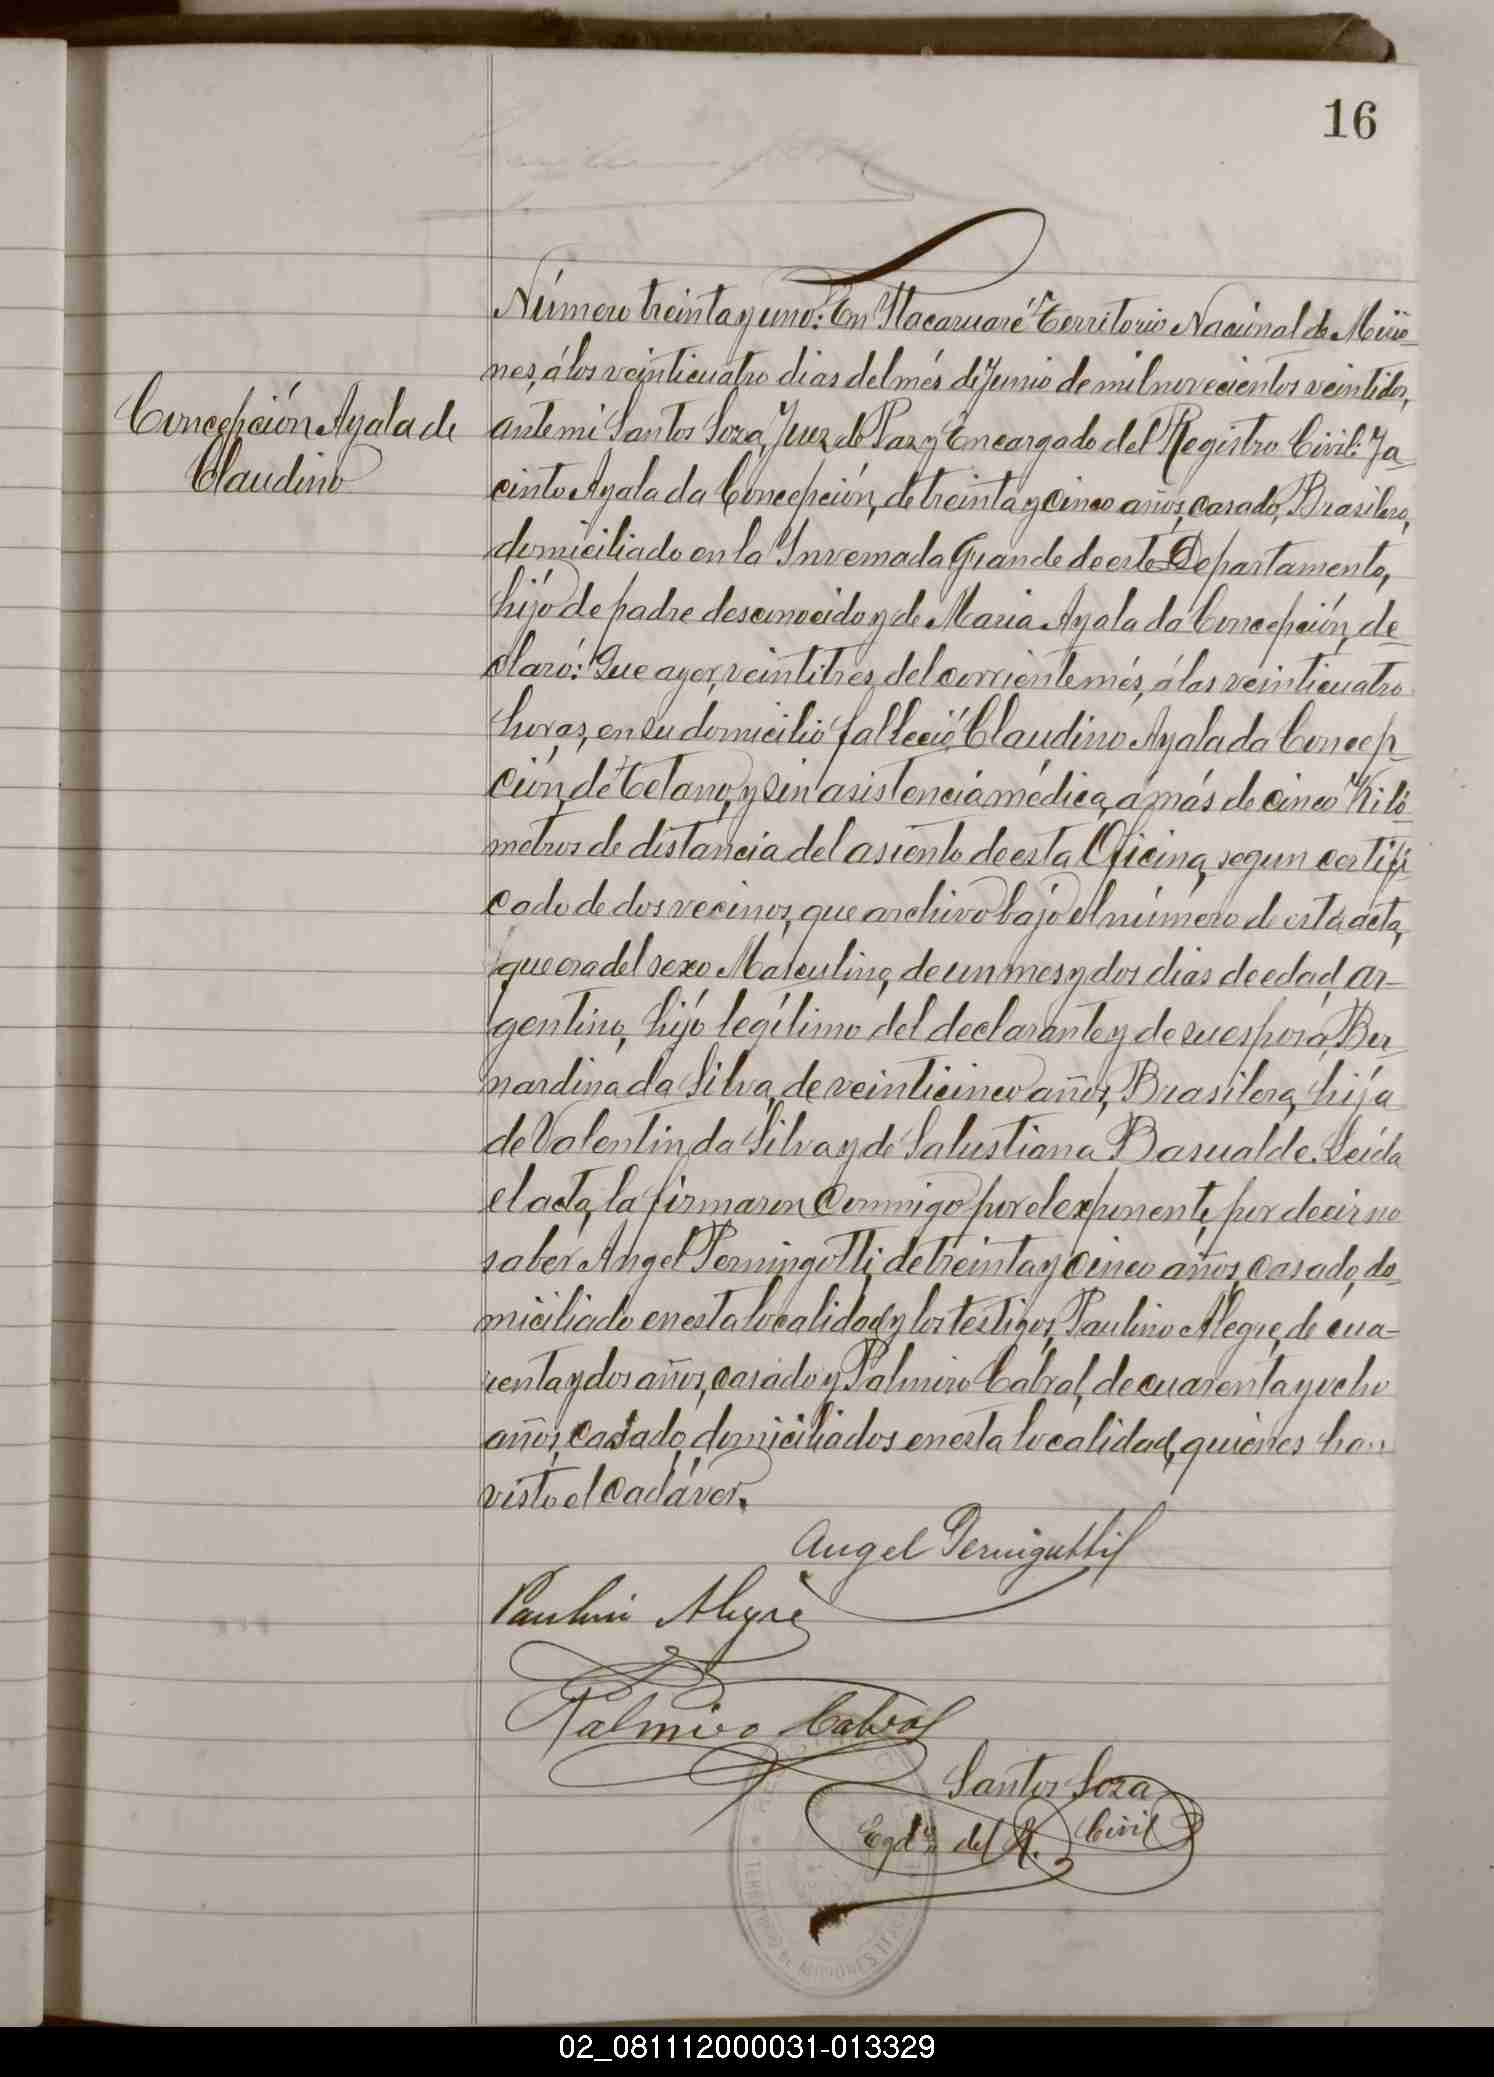 16
Concepción Ayala de
Claudino
Número treinta y uno: En Itacaruaré Territorio Nacional de Misio-
nes, á los veinticuatro dias del més de Junio de mil novecientos veintidos,
ante mi Santos Soza, Juez de Paz y Encargado del Registro Civil: Ja-
cinto Ayala da Concepción, de treinta y cinco años, casado, Brasilero,
domiciliado en la Invernada Grande de este Departamento,
hijo de padre desconocido y de Maria Ayala da Concepción, de-
claró: Que ayer, veintitres del corriente més, á las veinticuatro
horas, en su domicilio falleció Claudino Ayala da Concep-
ción, de Tetano, y sin asistencia médica, a más de cinco Kiló-
metros de distancia del asiento de esta Oficina, segun certifi-
cado de dos vecinos, que archivo bajo el número de esta acta,
que era del sexo Masculino, de un mes y dos dias de edad, ar-
gentino, hijo legítimo del declarante y de su esposa, Ber-
nardina da Silva, de veinticinco años, Brasilera, hija
de Valentin da Silva y de Salustiana Basualde. Leida
el acta, la firmaron conmigo por el exponente, por decir no
saber Angel Perningotti, de treinta y cinco años, casado, do-
miciliado en esta localidad y los testigos, Paulino Alegre, de cua-
renta y dos años, casado y Palmiro Cabral, de cuarenta y ocho
años, casado, domiciliados en esta localidad, quienes han
visto el cadáver.
Angel Pernigotti
Paulino Alegre
Palmiro Cabral
Santos Soza
Egdo del R. Civil
TERRITORIO DE MISIONES
02_081112000031-013329